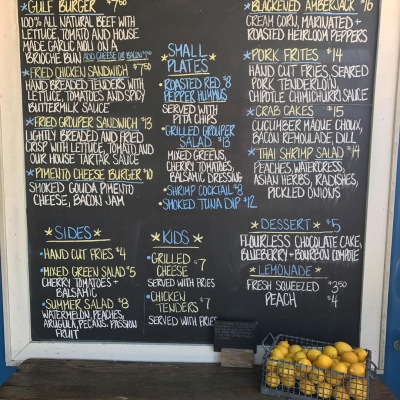 *GULF BURGER $7.50
100% ALL NATURAL BEEF WITH
LETTUCE, TOMATO AND HOUSE
MADE GARLIC AIOLI ON A
BRIOCHE BUN ADD CHEESE OR BACON
*FRIED CHICKEN SANDWICH $7.50
HAND BREADED TENDERS WITH
LETTUCE, TOMATOES AND SPICY
BUTTERMILK SAUCE
*FRIED GROUPER SANDWICH $13
LIGHTLY BREADED AND FRIED
CRISP WITH LETTUCE, TOMATO AND
OUR HOUSE TARTAR SAUCE
*PIMENTO CHEESE BURGER $10
SMOKED GOUDA PIMENTO
CHEESE, BACON JAM
SMALL
PLATES
ROASTED RED $8
PEPPER HUMMUS
SERVED WITH
PITA CHIPS
GRILLED GROUPER
SALAD $13
MIXED GREENS,
CHERRY TOMATOES,
BALSAMIC DRESSING
SHRIMP COCKTAIL $8
SMOKED TUNA DIP $12
*BLACKENED AMBERJACK $16
CREAM CORN, MARINATED +
ROASTED HEIRLOOM PEPPERS
*PORK FRITES $14
HAND CUT FRIES, SEARED
PORK TENDERLOIN
CHIPOTLE CHIMICHURRI SAUCE
*CRAB CAKES $15
CUCUMBER MAQUE CHOUX,
BACON REMOULADE, DILL
*THAI SHRIMP SALAD $14
PEACHES, WATERCRESS,
ASIAN HERBS, RADISHES,
PICKLED ONIONS
* SIDES *
HAND CUT FRIES $4
MIXED GREEN SALAD $5
CHERRY TOMATOES +
BALSAMIC
SUMMER SALAD $8
WATERMELON, PEACHES,
ARUGULA, PECANS, PASSION
FRUIT
* KIDS *
GRILLED
CHEESE $7
SERVED WITH FRIES
CHICKEN
TENDERS $7
SERVED WITH FRIES
* DESSERT * $5
FLOURLESS CHOCOLATE CAKE,
BLUEBERRY + BOURBON COMPOTE
* LEMONADE *
FRESH SQUEEZED $3.50
PEACH $4